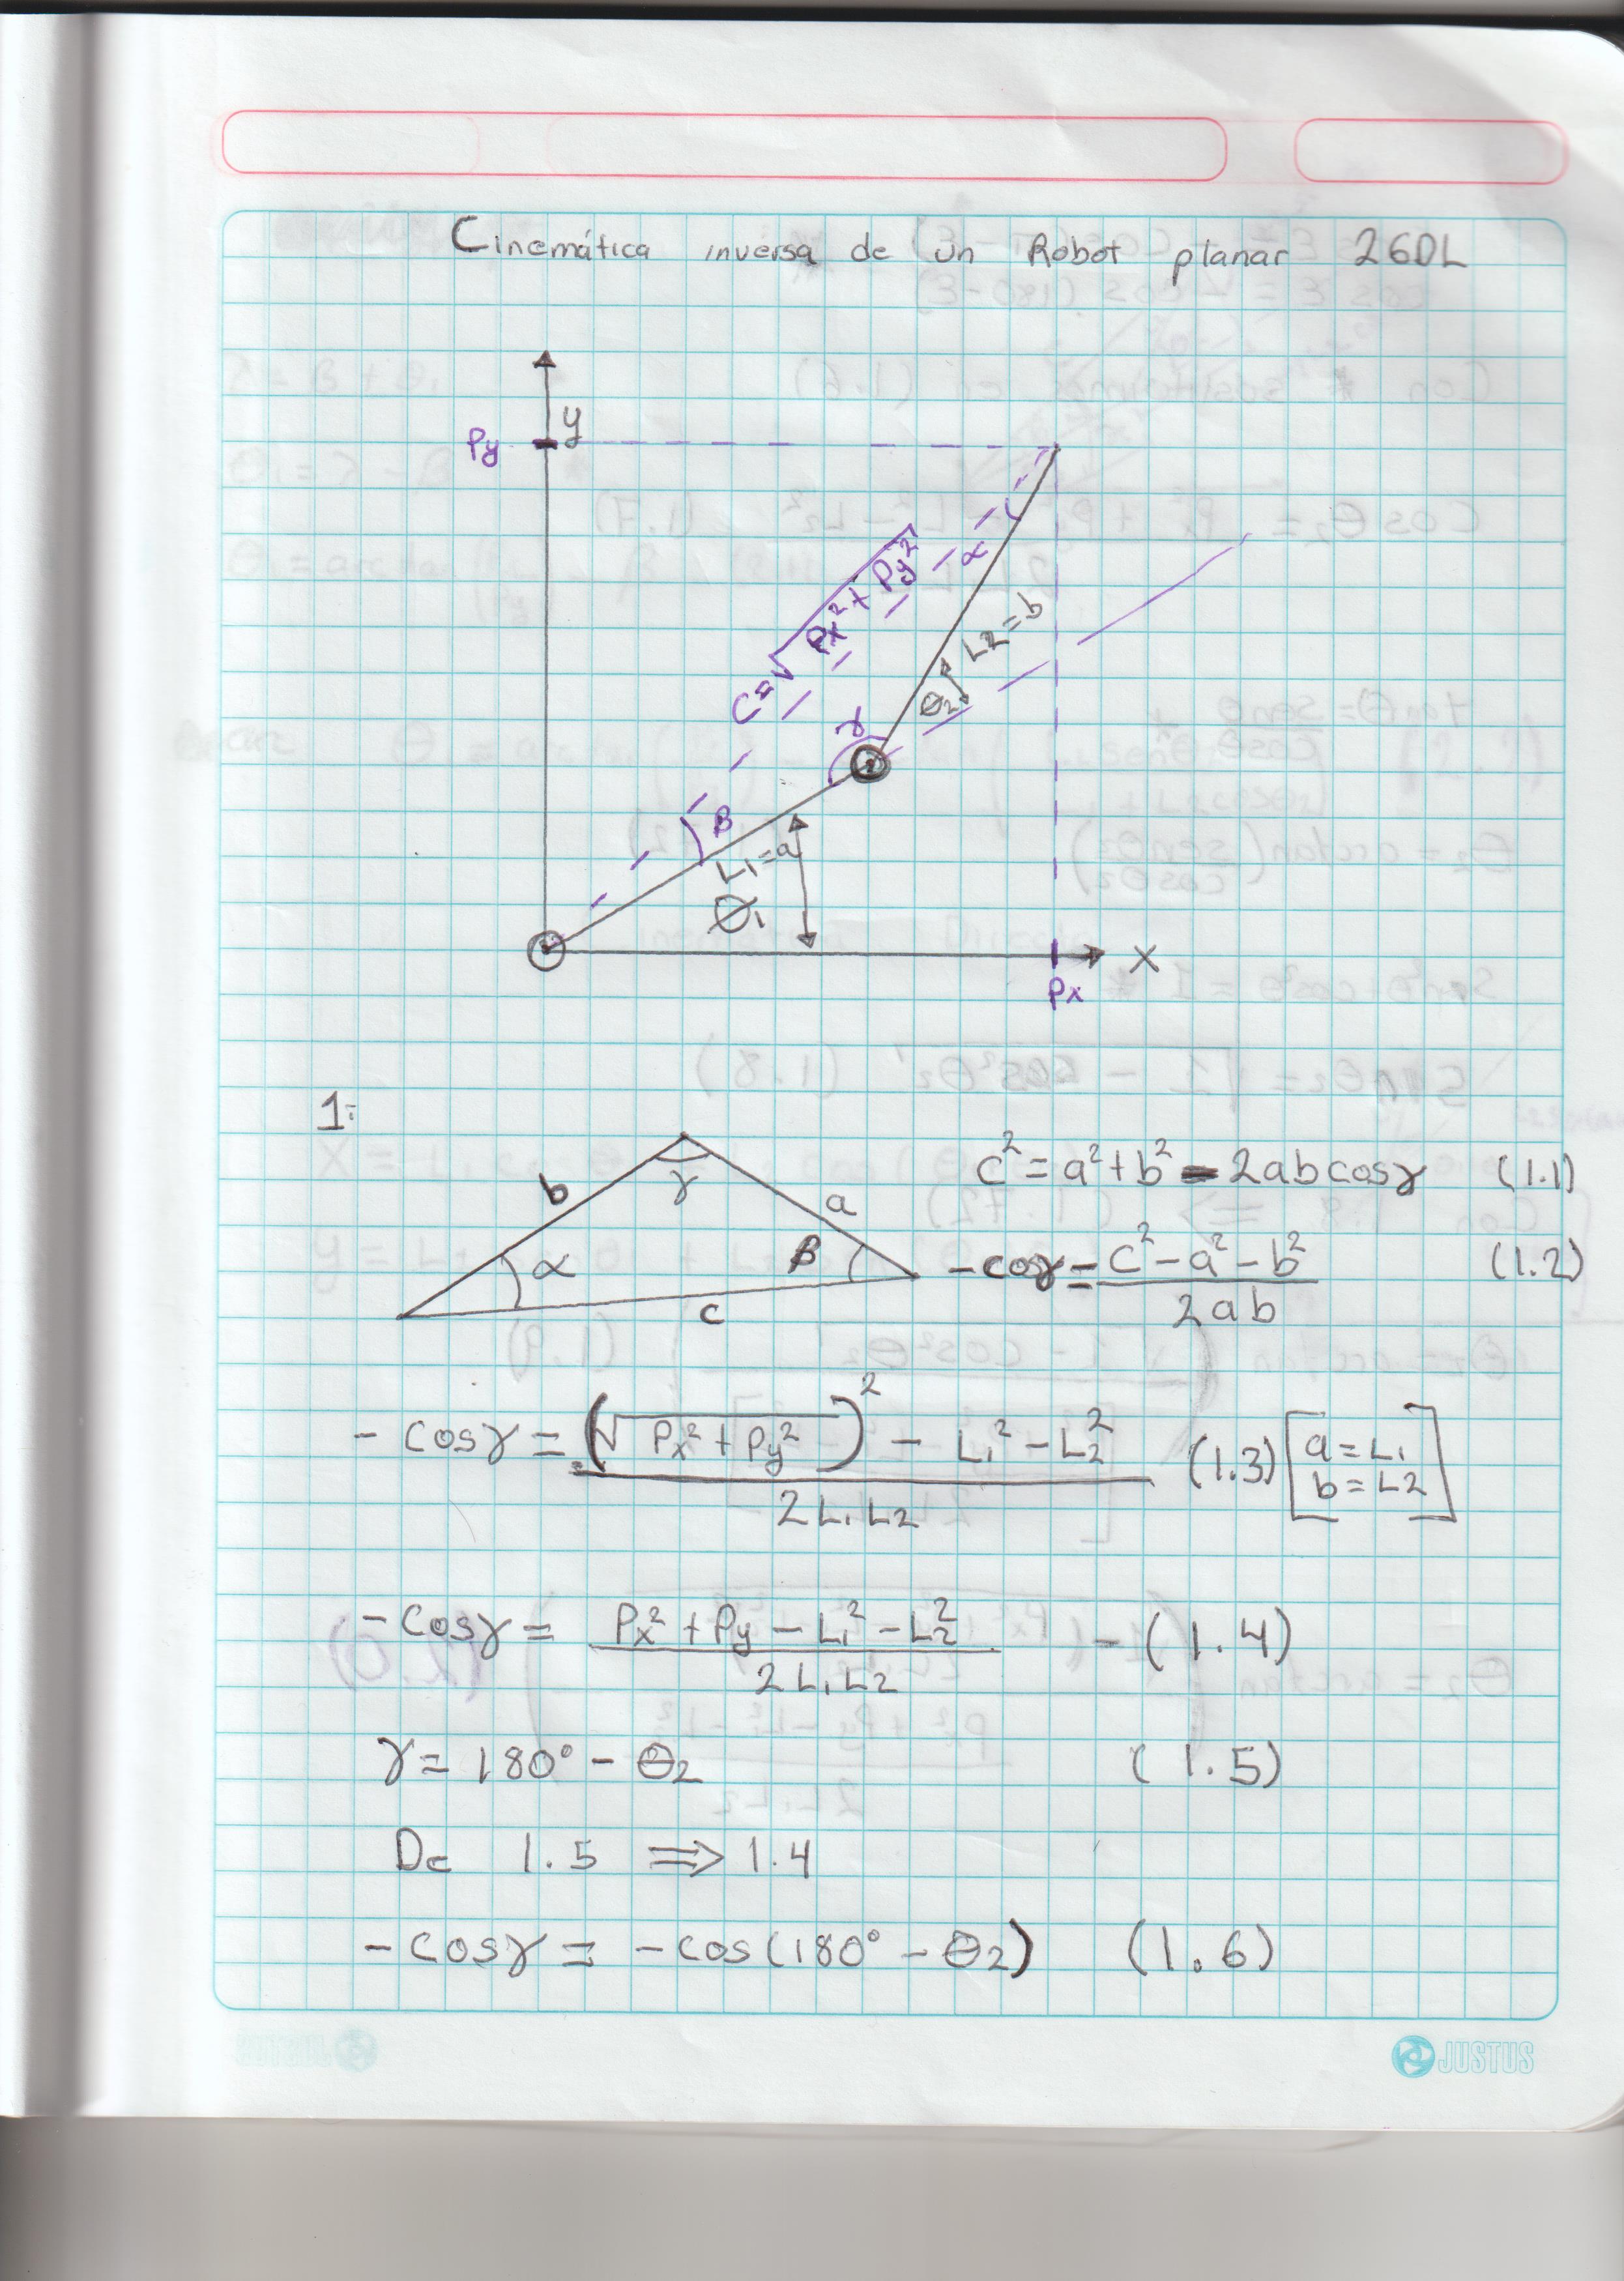 Cinemática inversa de un Robot planar 2GDL
y
Py
C=√Px²+Py²
α
L2=b
θ2
γ
2
β
L1=a
θ1
X
Px
1:
b γ a
α β
c
c²=a²+b²-2abcosγ (1.1)
-cosγ=c²-a²-b²/2ab (1.2)
-cosγ=(√Px²+Py²)²-L1²-L2²/2L1L2 (1.3) [a=L1 b=L2]
-cosγ=Px²+Py-L1²-L2²/2L1L2 -(1.4)
γ=180°-θ2 (1.5)
De 1.5 ⇒ 1.4
-cosγ=-cos(180°-θ2) (1.6)
JUSTUS